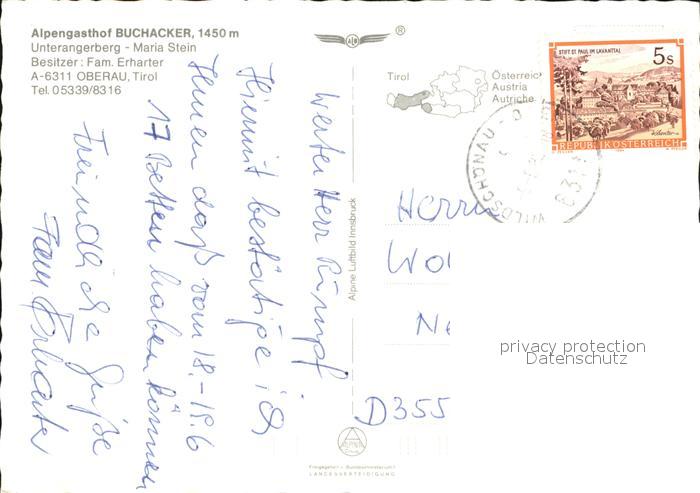 Alpengasthof BUCHACKER, 1450 m
Unterangerberg - Maria Stein
Besitzer: Fam. Erharter
A-6311 OBERAU, Tirol
Tel. 05339/8316
Werter Herr Rumpf
Hiermit bestätige ich
Ihnen daß vom 18.-19.6
17 Betten haben können
Freundliche Grüße
Fam Erharter
Alpine Luftbild Innsbruck
®
Tirol
Österreich
Austria
Autriche
STIFT ST. PAUL IM LAVANTTAL
5 s
REPUBLIK ÖSTERREICH
WILDSCHÖNAU
6311
Herrn
Wo
Ne
D 355
privacy protection
Datenschutz
Freigegeben - Bundesministerium f.
LANDESVERTEIDIGUNG